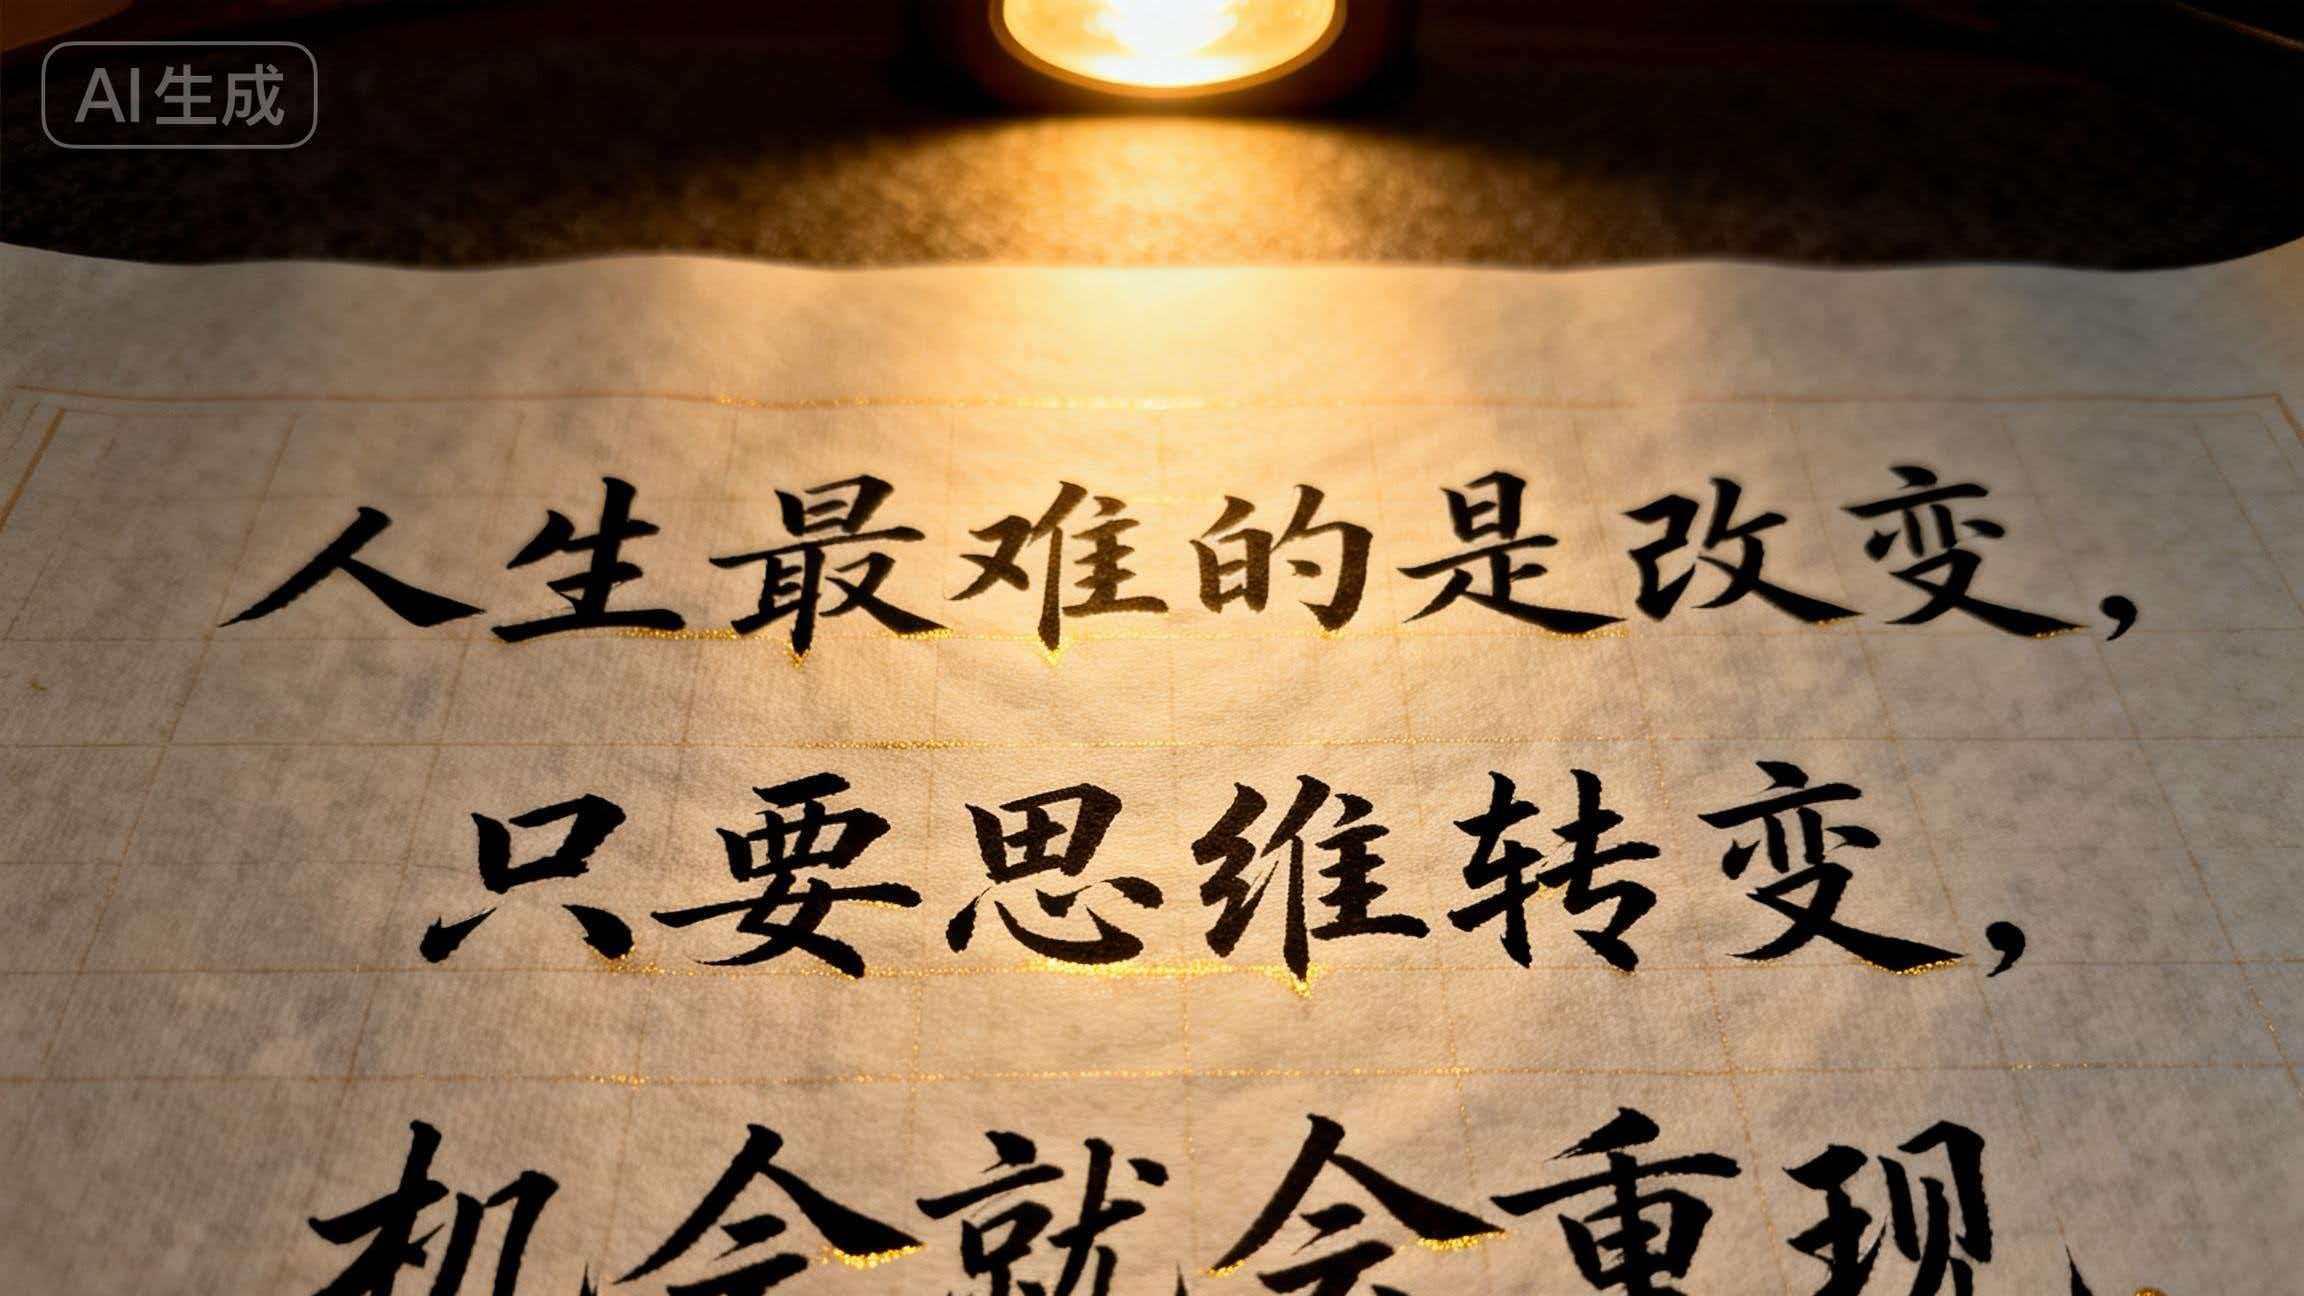 AI生成
人生最难的是改变，
只要思维转变，
机会就会重现